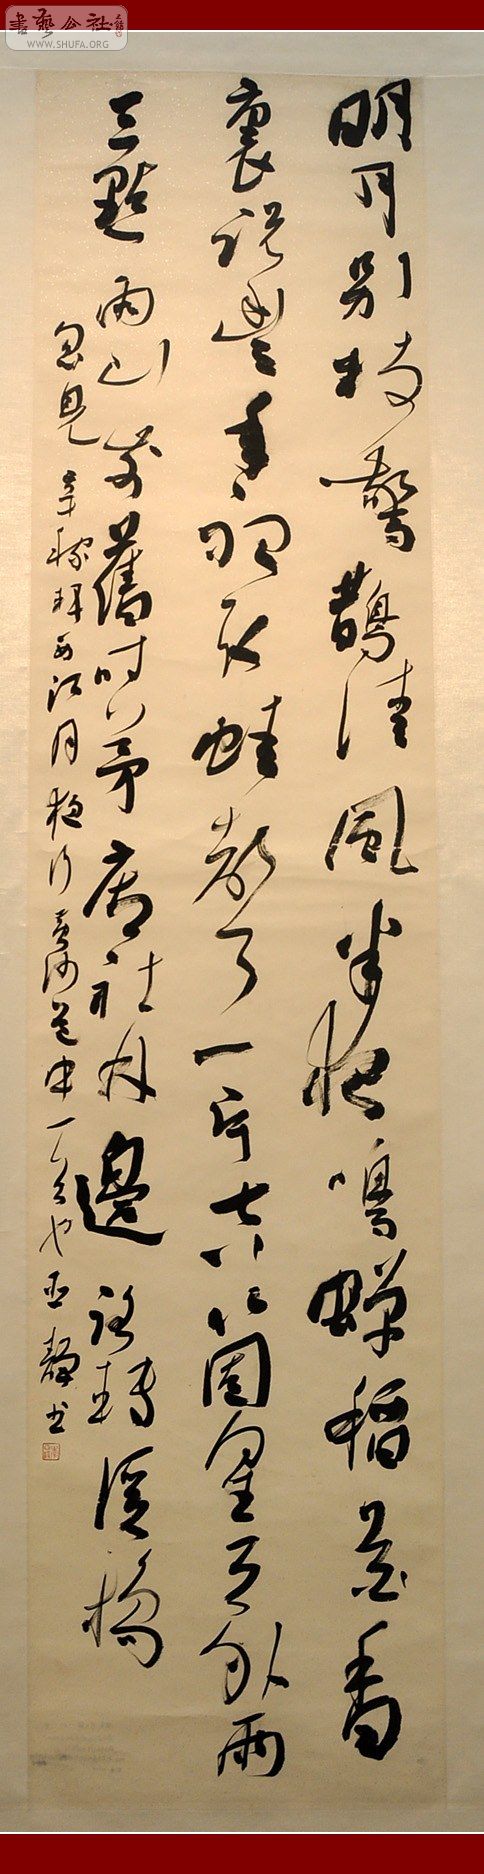 書藝公社
WWW.SHUFA.ORG
明月別枝驚鵲清風半夜鳴蟬稻花香
裏說豐年聽取蛙聲一片七八個星天外兩
三點雨山前舊時茅店社林邊路轉溪橋
忽見 辛稼軒西江月夜行黃沙道中一首也 靜書